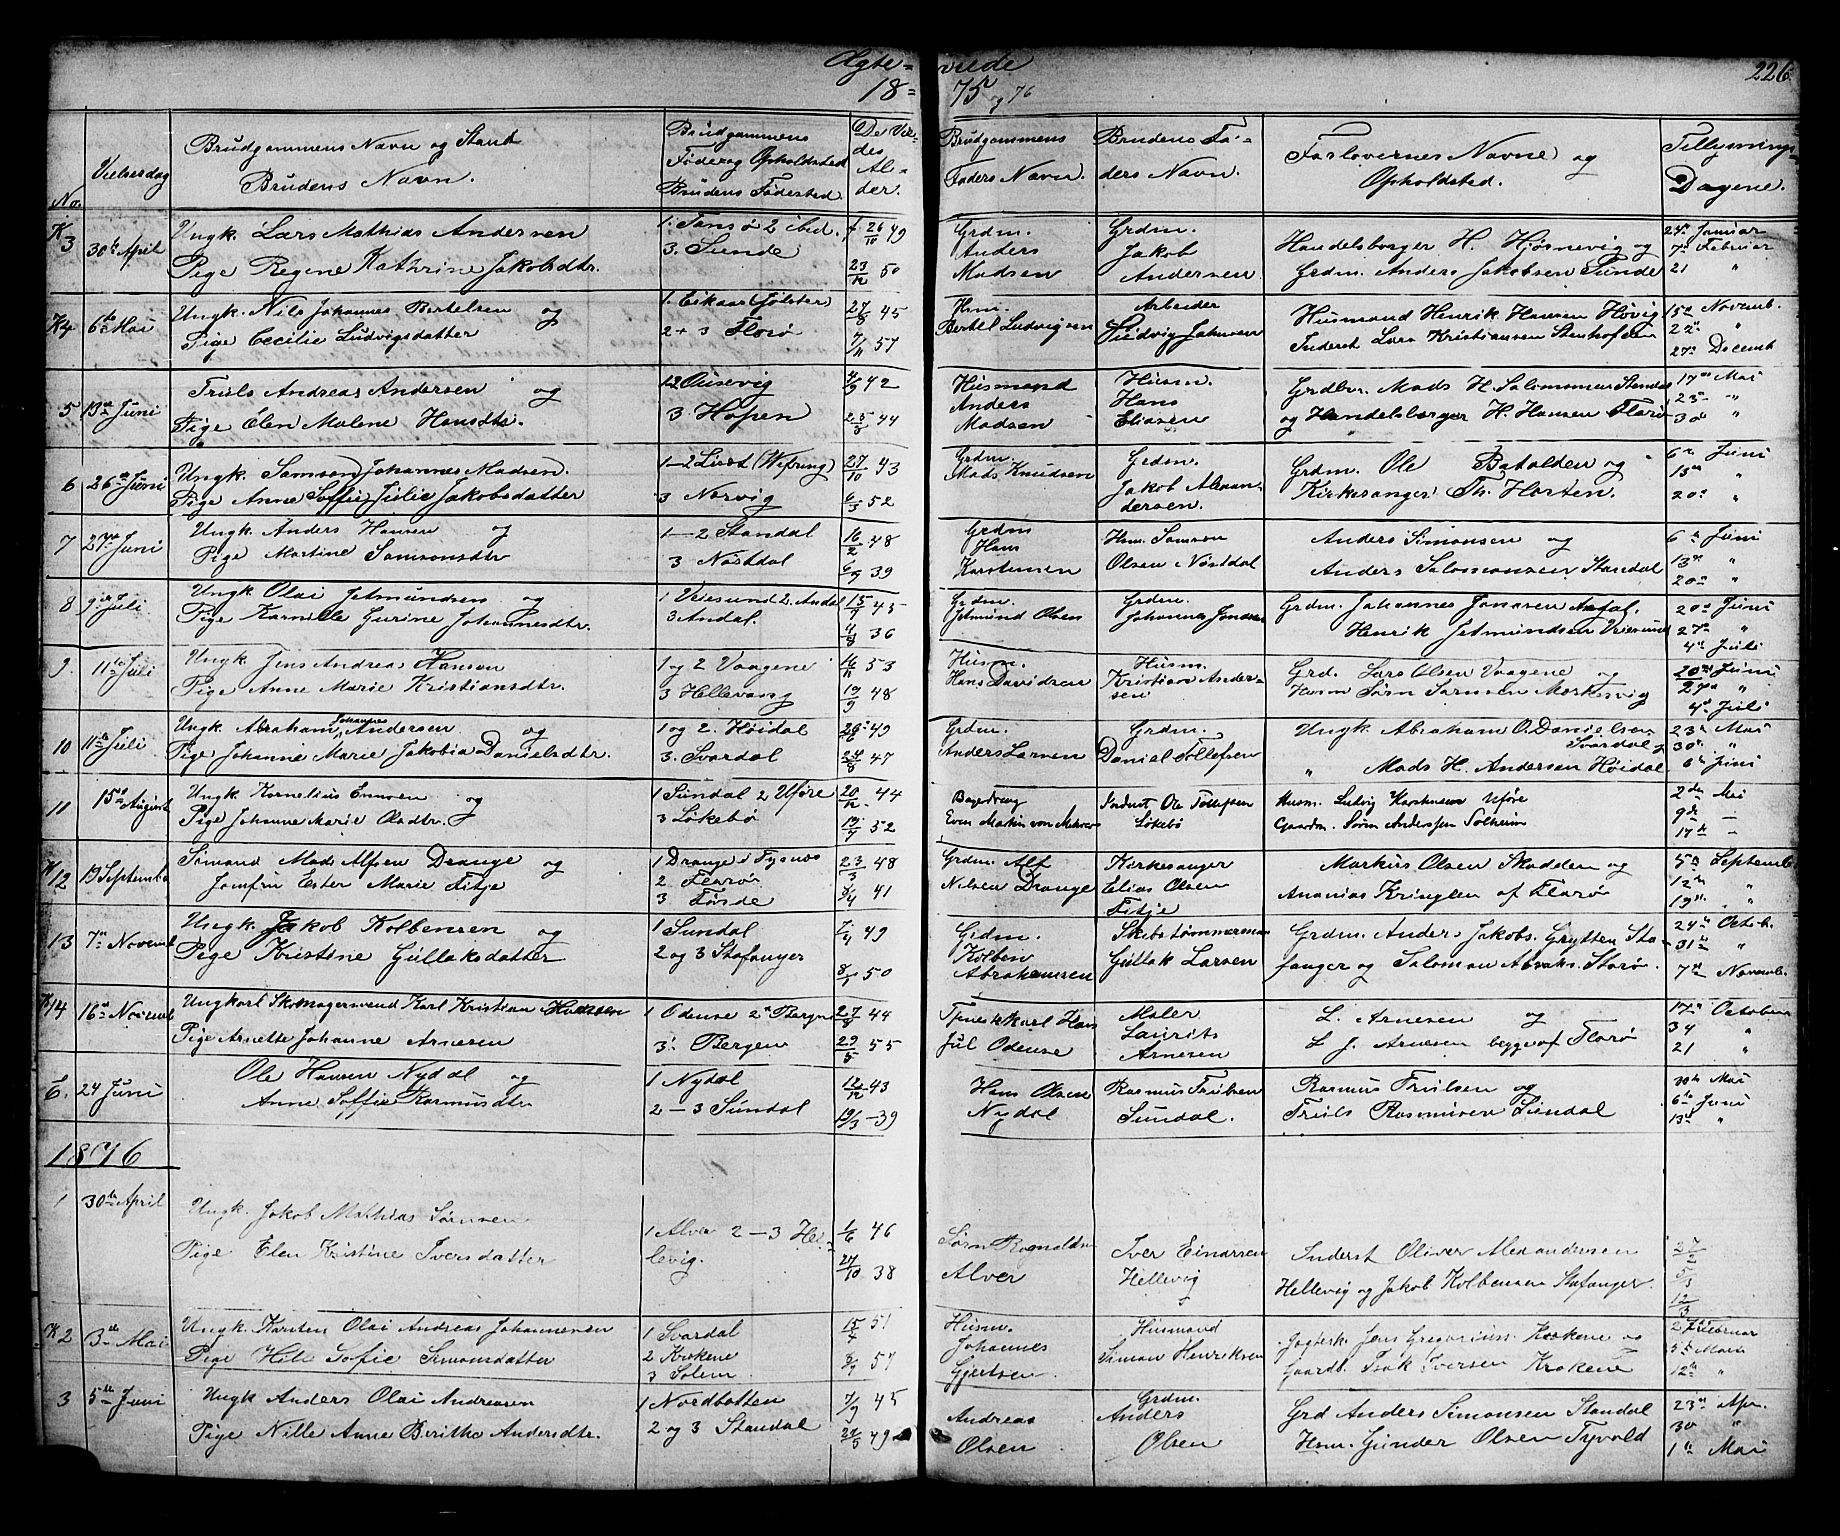 Ægte=
viede
226
18=
75 og 76
No.
Vielsesdag
Brudgommens Navn og Stand
Brudens Navn.
Brudgommens
Føde og Opholdsted
Brudens Fødested
De Vie-
des
Al-
der.
Brudgommens
Faders Navn.
Brudens Fa-
ders Navn.
Forlovernes Navne og
Opholdsted.
Tillysnings-
Dagene.
K 3 30te April
Ungk. Lars Mathias Andersen
Pige Regene Kathrine Jakobsdtr.
1. 2 ibid.
3. Sunde
26/10 49
23/12 50
Grdm.
Anders
Madsen
Grdm.
Jakob
Andersen
Handelsborger H. Hjosnevig og
Grdm. Anders Jakobsen Sunde
24n Januar
7n Februar
21 "
K 4 6te Mai
Ungk. Nils Johannes Bertelsen og
Pige Cecilie Ludvigsdatter
1. Eikaas (Jølster)
2 + 3 Florø
27/8 45
7/11 57
Hsm.
Bertel Ludvigsen
Arbeider
Ludvig Johnsen
Husmand Henrik Hansen Høvig
Inderst Lars Kristiansen Stenhofden
15n Novemb.
22n "
27n Decemb
5 13n Juni
Truls Andreas Andersen og
Pige Elen Malene Hansdtr.
12 Ousevig
3 Hopen
4/9 42
25/3 44
Husmand
Anders
Madsen
Husm.
Hans
Eliasen
Grdbr. Mads H. Salomonsen Standal
og Handelsborger H. Hansen Florø
17n Mai
23n "
30 "
6 26n Juni
Ungk. Samson Johannes Madsen.
Pige Anne Soffie Julie Jakobsdatter
1-2 Liset (Vefring)
3 Norvig
27/10 43
6/3 52
Grdm.
Mads Knudsen
Grdm.
Jakob Alexan-
dersen.
Grdm. Ole Batalden og
Kirkesanger Th. Horten.
6n Juni
13n "
20n "
7 27n Juni
Ungk. Anders Hansen og
Pige Martine Samsonsdtr
1-2 Standal
3 Nøstdal
16/2 48
6/9 39
Grdm
Hans
Karstensen
Hsm. Samson
Olsen Nøstdal
Anders Simonsen og
Anders Salomonsen Standal
6n Juni
13n "
20n "
8 9de Juli
Ungk Olai Jetmundsen og
Pige Karnille Gurine Johannesdtr.
1 Veiesund 2. Andal
3 Andal.
15/7 45
4/8 36
Grdm.
Jetmund Olsen
Grdm.
Johannes Jonssen
Grdm. Johannes Jonasen Andal.
Henrik Jetmundsen Veiesund
20n Juni
27n "
4n Juli
9. 11te Juli
Ungk. Jens Andreas Hanson
Pige Anne Marie Kristiansdtr.
1 og 2 Vaagene
3 Hellevang
16/11 53
19/9 48
Husm.
Hans Davidsen
Husm.
Kristian Ander-
sen
Grd. Lars Olsen Vaagene og
Husm Sørn Sørnsen Morkesvig
20n Juni
27n "
4n Juli
10 11te Juli
Ungk. Abraham Johannes Andersen og
Pige Johanne Marie Jakobia Danielsdtr.
1 og 2. Høidal
3. Svardal
26/6 49
24/8 47
Grdm.
Anders Larsen
Grdm.
Daniel Tollefsen
Ungk Abraham O. Danielsen
Svardal og
" Mads H. Andersen Høidal
23n Mai
30n "
6n Juni
11 15de August
Ungk. Kornelius Ennsen og
Pige Johanne Marie Olsdtr.
1 Sundal 2 Uføre
3 Løkebø
20/12 44
19/7 52
Even Martin von
Inderst Ole Tollefsen
Løkebø
Husm. Ludvig Karstensen Uføre
Gaardm. Sørn Anderssen Solheim
2den Mai
9de -
17n -
K 12 19 Septemb
Simand Mads Alfsen Drange og
Jomfru Ester Marie Fitje
1 Drange i Tysnes
2 Florø
3 Førde
23/3 48
8/4 41
Grdm. Alf
Nilsen Drange
Kirkesanger
Elias Olsen
Fitje
Markus Olsen Skodden og
Ananias Kringlen af Florø
5n Septemb.
12n "
19n "
13 7n Novemb
Ungk. Jakob Kolbensen og
Pige Kristine Gullaksdatter
1 Sundal
2 og 3 Stafanger
7/4 49
8/1 50
Grdm.
Kolben
Abrahamsen
Skibstømmermand
Gullak Larsen
Grdm. Anders Jakobs. Grytten Sta-
fanger og Salomon Abrahs. Storø.
24n Octob.
31n "
7n Novemb.
K 14 16n Novemb
Ungkarl Skomagersvend Karl Kristian Hansen
Pige Arnette Johanne Arnesen
1 Odense 2n Bergen
3. Bergen
27/8 44
29/5 55
Tjenestkarl Hans
Jul Odense
Maler
Laurits
Arnesen
L. Arnesen og
L J. Arnesen begge af Florø
17n October
34 "
21 "
E. 24 Juni
Ole Hansen Nydal og
Anne Soffie Rasmusdtr
1 Nydal
2-3 Sundal
12/12 43
19/3 -39
Hans Olsen
Nydal
Rasmus Trulsen
Sundal.
Rasmus Trulsen og
Truls Rasmusen Sundal
30te Mai
6te Juni
13n "
1876
1 30te April
Ungk. Jakob Mathias Sørnsen
Pige Elen Kristine Iversdatter
1 Alver 2-3 Hel-
levig.
1/6 46
27/10 38
Sørn Rognalds
Alver
Iver Einarsen
Hellevig
Inderst Oliver Alexandersen
Hellevig og Jakob Kolbensen Stafanger
27/2
5/3
12/3
K 2 3die Mai
Ungk. Karsten Olai Andreas Johannesen
Pige Hils Sofie Simonsdatter
1 Svardal
2 Krokene
3 Solem
15/7 51
8/7 57
Husm.
Johannes
Gjertsen
Husmand
Simon Henriksen
Jens Gregorius. Krokene og
Gaardb. Isak Iversen Krokene
27 Februar
5n Marts
12n "
3 5te Juni
Ungk Anders Olai Andreasen
Pige Nille Anne Berithe Andersdtr.
1 Nordbotten
2 og 3 Standal
7/9 45
27/5 49
Andreas
Olsen
Grdm.
Anders
Olsen
Grd Anders Simonsen Standal
Hsm. Gunder Olsen Tyvold
23n Apr.
30 "
1n Mai